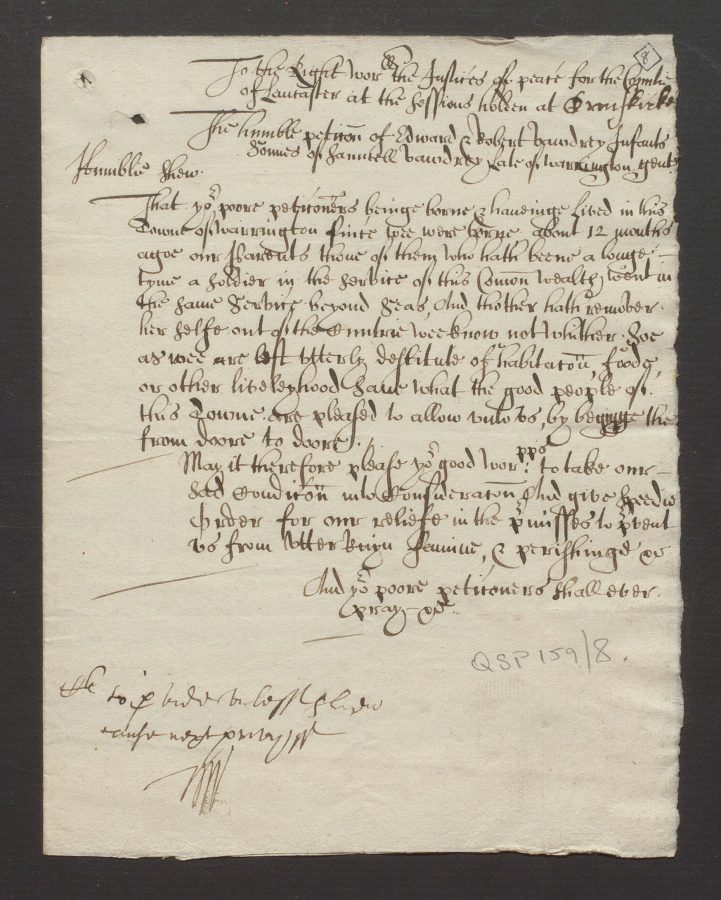 8
To the Right wor:ll the Justices of peace for the Countie
of Lancaster at the sessions holden at Ormiskirke
The humble peticon of Edward & Robert Vawdrey Infants
Sonnes of Samuell Vawdrey Late of Warrington gent
Humblie Shew.
That yor poore peticoners beinge borne & haveinge Lived in this
Towne of Warrington since wee were borne about 12 months
agoe our Parents thone of them who hath beene a longe
tyme a soldier in the service of this Comon wealth, went in
the same Service beyond seas, And thother hath remover
her selfe out of the Cuntrie wee know not whither. Soe
as wee are left Utterly destitute of habitacon, foode,
or other liveleyhood save what the good people of
this Towne are pleased to allow unto us, by begginge the
from doore to doore.
May it therefore please yor good wor:pps to take our
sad Condicon into Consideracon And give speedie
Order for our reliefe in the pmisses to pvent
us from Utter Ruyn famine, & perishinge &c
And yor poore peticoners shall ever
pray &c.
QSP 159/8.
to p vide unless shew
cause next